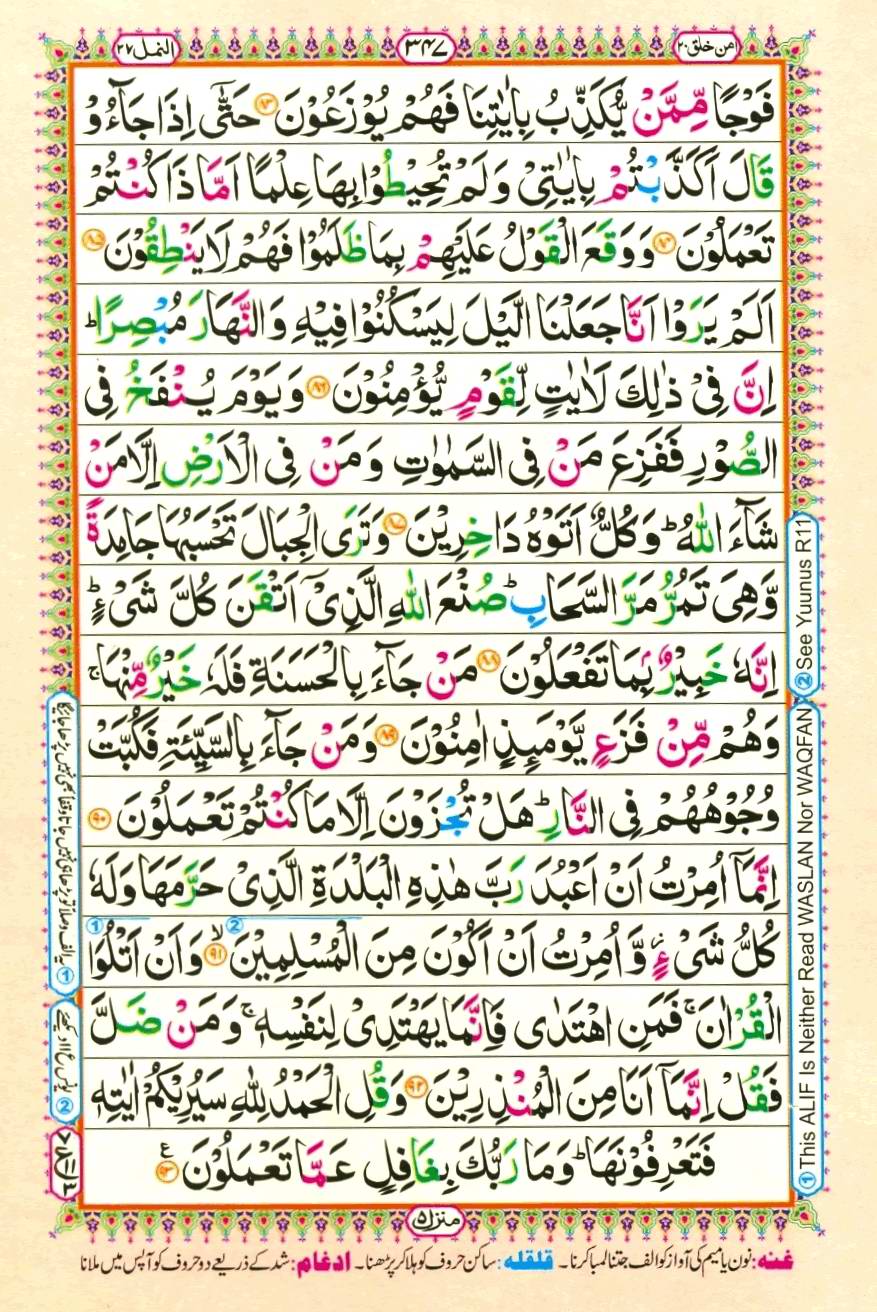 امن خلق ۲۰
۳۴۷
النمل ۲۷
فَوْجًا مِّمَّنْ یُّكَذِّبُ بِاٰیٰتِنَا فَهُمْ یُوْزَعُوْنَ ﴿۸۳﴾ حَتّٰۤی اِذَا جَآءُوْ
قَالَ اَكَذَّبْتُمْ بِاٰیٰتِیْ وَلَمْ تُحِیْطُوْا بِهَا عِلْمًا اَمَّا ذَا كُنْتُمْ
تَعْمَلُوْنَ ﴿۸۴﴾ وَوَقَعَ الْقَوْلُ عَلَیْهِمْ بِمَا ظَلَمُوْا فَهُمْ لَا یَنْطِقُوْنَ ﴿۸۵﴾
اَلَمْ یَرَوْا اَنَّا جَعَلْنَا الَّیْلَ لِیَسْكُنُوْا فِیْهِ وَالنَّهَارَ مُبْصِرًا ؕ
اِنَّ فِیْ ذٰلِكَ لَاٰیٰتٍ لِّقَوْمٍ یُّؤْمِنُوْنَ ﴿۸۶﴾ وَیَوْمَ یُنْفَخُ فِی
الصُّوْرِ فَفَزِعَ مَنْ فِی السَّمٰوٰتِ وَمَنْ فِی الْاَرْضِ اِلَّا مَنْ
شَآءَ اللّٰهُ ؕ وَكُلٌّ اَتَوْهُ دَاخِرِیْنَ ﴿۸۷﴾ وَتَرَی الْجِبَالَ تَحْسَبُهَا جَامِدَةً
وَّهِیَ تَمُرُّ مَرَّ السَّحَابِ ؕ صُنْعَ اللّٰهِ الَّذِیْۤ اَتْقَنَ كُلَّ شَیْءٍ ؕ
اِنَّهٗ خَبِیْرٌۢ بِمَا تَفْعَلُوْنَ ﴿۸۸﴾ مَنْ جَآءَ بِالْحَسَنَةِ فَلَهٗ خَیْرٌ مِّنْهَا ۚ
وَهُمْ مِّنْ فَزَعٍ یَّوْمَىِٕذٍ اٰمِنُوْنَ ﴿۸۹﴾ وَمَنْ جَآءَ بِالسَّیِّئَةِ فَكُبَّتْ
وُجُوْهُهُمْ فِی النَّارِ ؕ هَلْ تُجْزَوْنَ اِلَّا مَا كُنْتُمْ تَعْمَلُوْنَ ﴿۹۰﴾
اِنَّمَاۤ اُمِرْتُ اَنْ اَعْبُدَ رَبَّ هٰذِهِ الْبَلْدَةِ الَّذِیْ حَرَّمَهَا وَلَهٗ
كُلُّ شَیْءٍ ؗ وَّاُمِرْتُ اَنْ اَكُوْنَ مِنَ الْمُسْلِمِیْنَ ﴿۹۱﴾ ۙ وَاَنْ اَتْلُوَا
الْقُرْاٰنَ ۚ فَمَنِ اهْتَدٰی فَاِنَّمَا یَهْتَدِیْ لِنَفْسِهٖ ۚ وَمَنْ ضَلَّ
فَقُلْ اِنَّمَاۤ اَنَا مِنَ الْمُنْذِرِیْنَ ﴿۹۲﴾ وَقُلِ الْحَمْدُ لِلّٰهِ سَیُرِیْكُمْ اٰیٰتِهٖ
فَتَعْرِفُوْنَهَا ؕ وَمَا رَبُّكَ بِغَافِلٍ عَمَّا تَعْمَلُوْنَ ﴿۹۳﴾ ع
② See Yuunus R11
① This ALIF Is Neither Read WASLAN Nor WAQFAN
منزل ۵
غنه: نون یا میم کی آواز کو الف جتنا لمبا کرنا۔ قلقله: ساکن حروف کو ہلا کر پڑھنا۔ ادغام: شد کے ذریعے دو حروف کو آپس میں ملانا